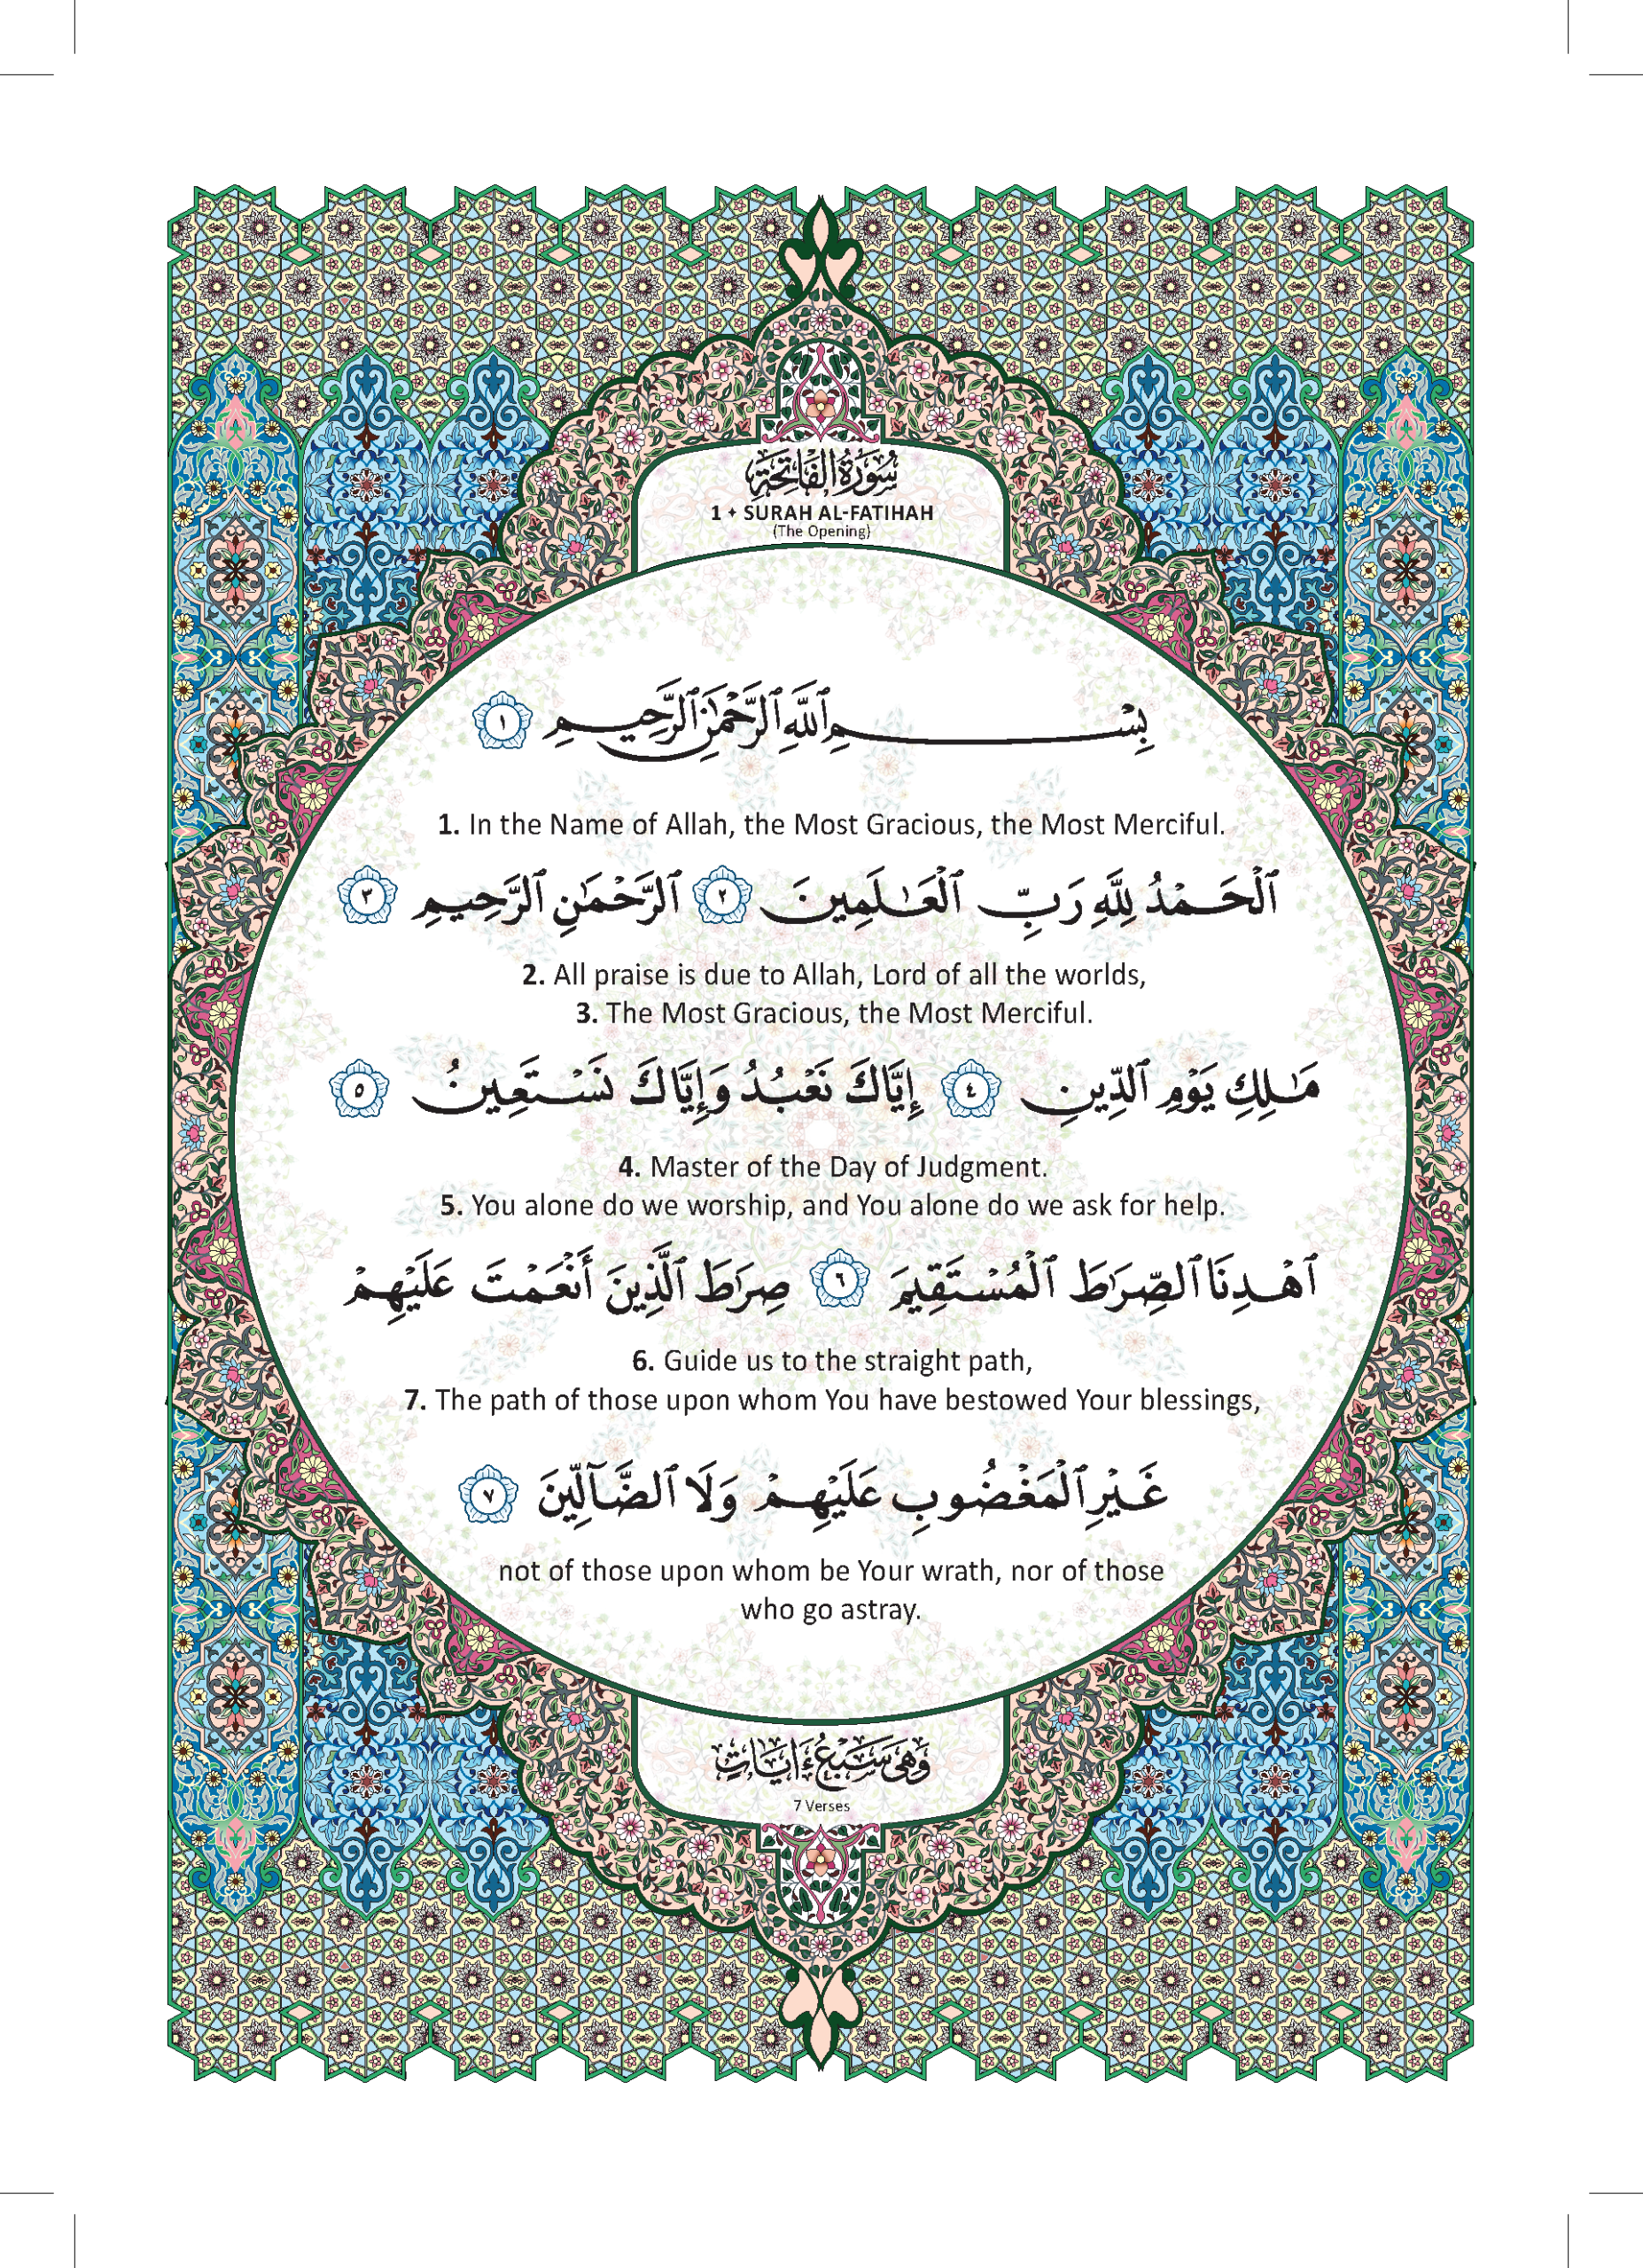 سُورَةُ الْفَاتِحَةِ
1 ✦ SURAH AL-FATIHAH
(The Opening)
بِسْمِ ٱللَّهِ ٱلرَّحْمَٰنِ ٱلرَّحِيمِ ١
1. In the Name of Allah, the Most Gracious, the Most Merciful.
ٱلْحَمْدُ لِلَّهِ رَبِّ ٱلْعَٰلَمِينَ ٢ ٱلرَّحْمَٰنِ ٱلرَّحِيمِ ٣
2. All praise is due to Allah, Lord of all the worlds,
3. The Most Gracious, the Most Merciful.
مَٰلِكِ يَوْمِ ٱلدِّينِ ٤ إِيَّاكَ نَعْبُدُ وَإِيَّاكَ نَسْتَعِينُ ٥
4. Master of the Day of Judgment.
5. You alone do we worship, and You alone do we ask for help.
ٱهْدِنَا ٱلصِّرَٰطَ ٱلْمُسْتَقِيمَ ٦ صِرَٰطَ ٱلَّذِينَ أَنْعَمْتَ عَلَيْهِمْ
6. Guide us to the straight path,
7. The path of those upon whom You have bestowed Your blessings,
غَيْرِ ٱلْمَغْضُوبِ عَلَيْهِمْ وَلَا ٱلضَّآلِّينَ ٧
not of those upon whom be Your wrath, nor of those
who go astray.
وَهِىَ سَبْعُ ءَايَاتٍ
7 Verses